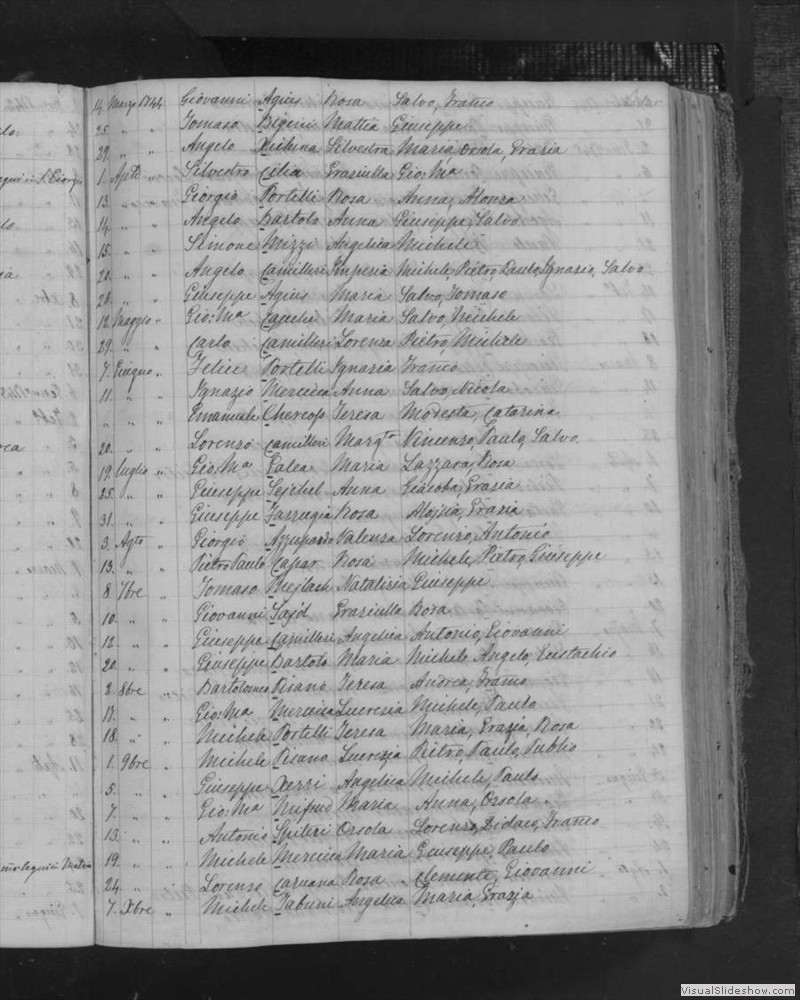 14. Marzo 1844 Giovanni Agius Rosa Salvo, Franco
25. " " Tomaso Bigeni Mattia Giuseppe
29. " " Angelo Xichina Silvestra Maria Orsola, Grazia
1. Aple " Silvestro Cilia Graziulla Gio: Ma
13. " " Giorgio Portelli Rosa Anna, Alonza
14. " " Angelo Bartolo Anna Giuseppe, Salvo
15. " " Simone Mizzi Angelica Michele
20. " " Angelo Camilleri Imperia Michele, Pietro Paulo, Ignazio, Salvo
28. " " Giuseppe Agius Maria Salvo, Tomaso
12. Maggio " Gio: Ma Cauchi Maria Salvo, Michele
29. " " Carlo Camilleri Lorenza Pietro Michele
7. Giugno " Felice Portelli Ignazia Franco
11. " " Ignazio Mercieca Anna Salvo, Nicola
" " " Emanuele Chercop Teresa Modesta, Catarina
20. " " Lorenzo Camilleri Margta Vincenzo, Paulo, Salvo
19. Luglio " Gio: Ma Galea Maria Lazzara, Rosa
25. " " Giuseppe Sejchel Anna Giacoba, Grazia
31. " " Giuseppe Farrugia Rosa Grazia
3. Agto " Giorgio Azzupardo Valenza Lorenzo, Antonio
13. " " Pietro Paulo Capar Rosa Michele, Pietro, Giuseppe
8. 7bre " Tomaso Mejlach Natalizia Giuseppe
10. " " Giovanni Sajd Graziulla Rosa
12. " " Giuseppe Camilleri Angelica Antonio, Giovanni
20. " " Giuseppe Bartolo Maria Michele Angelo, Eustachio
2. 8bre " Bartolomeo Pisano Teresa Andrea, Franco
17. " " Gio: Ma Mercieca Lucrezia Michele, Paulo
18. " " Michele Portelli Teresa Maria, Grazia, Rosa
1. 9bre " Michele Pisano Lucrezia Pietro, Paulo, Publio
5. " " Giuseppe Xerri Angelica Michele, Paulo
7. " " Gio: Ma Mifsud Maria Anna, Orsola
13. " " Antonio Spiteri Orsola Lorenzo, Didaco, Franco
19. " " Michele Mercieca Maria Giuseppe, Paulo
24. " " Lorenzo Caruana Rosa Clemente, Giovanni
7. Xbre " Michele Tabuni Angelica Maria, Grazia
VisualSlideshow.com